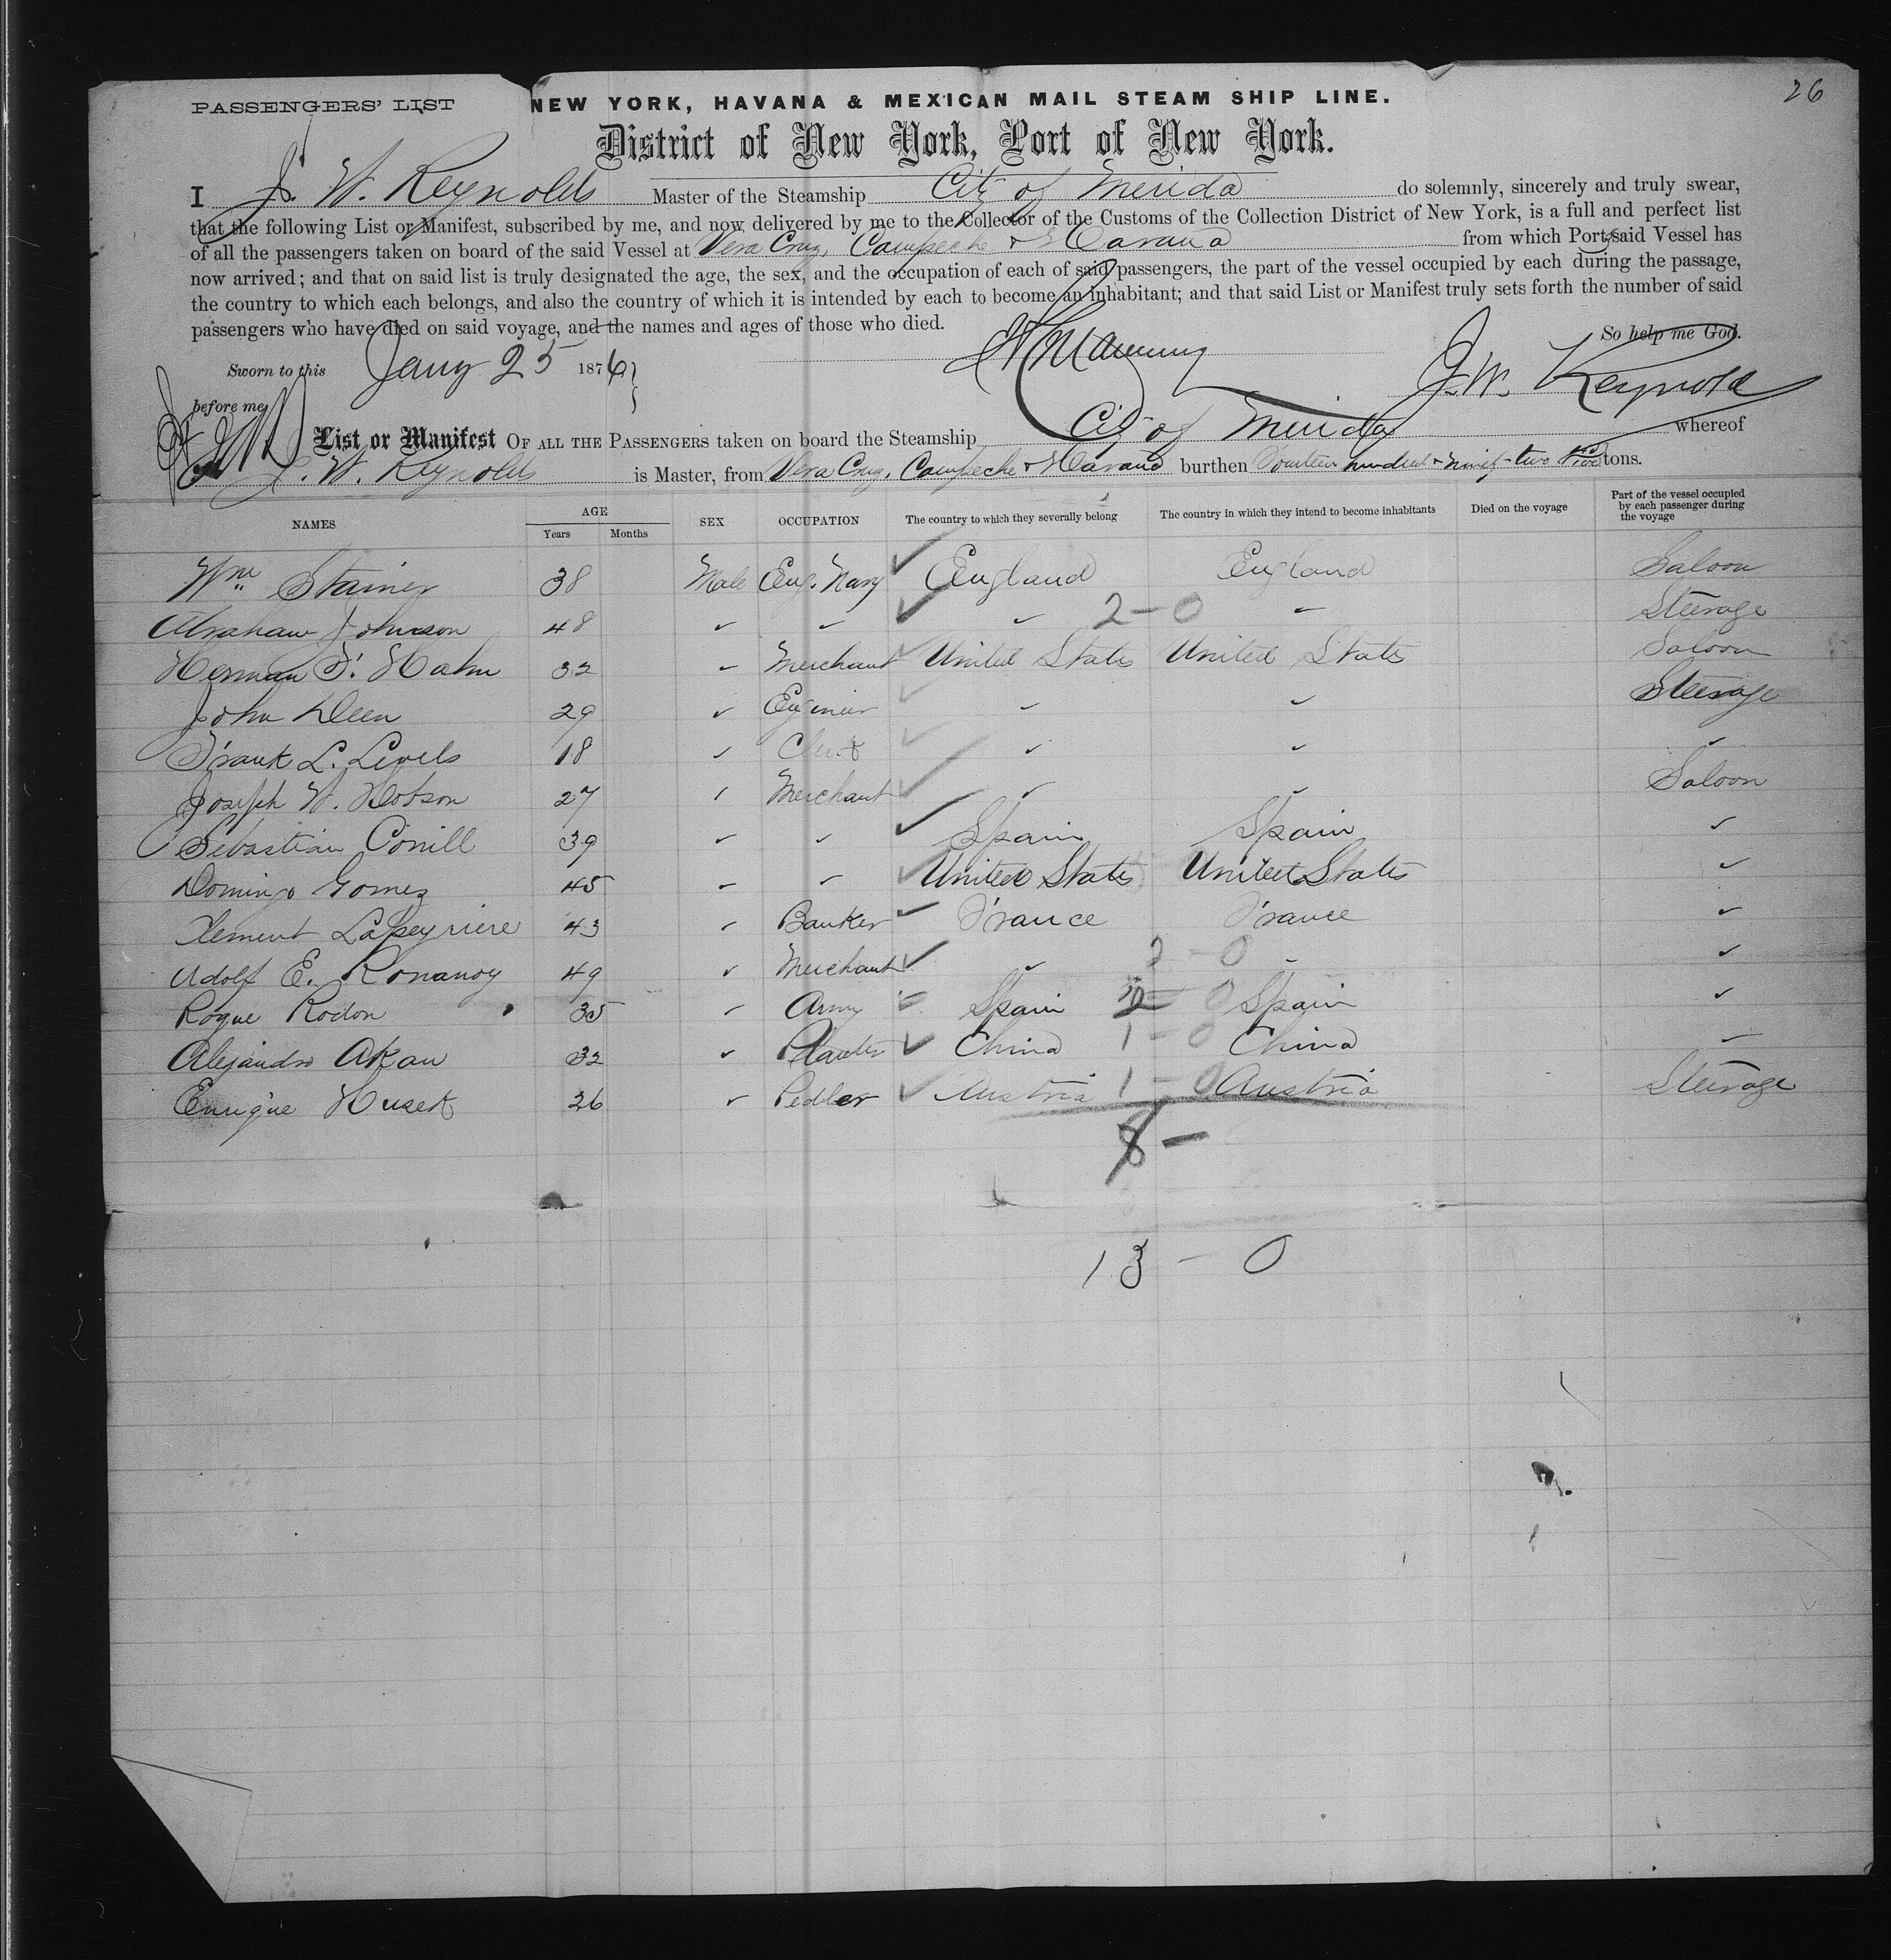 26
PASSENGERS' LIST NEW YORK, HAVANA & MEXICAN MAIL STEAM SHIP LINE.
District of New York, Port of New York.
I J. W. Reynolds Master of the Steamship City of Merida do solemnly, sincerely and truly swear,
that the following List or Manifest, subscribed by me, and now delivered by me to the Collector of the Customs of the Collection District of New York, is a full and perfect list
of all the passengers taken on board of the said Vessel at Vera Cruz, Campeche & Havana from which Port said Vessel has
now arrived; and that on said list is truly designated the age, the sex, and the occupation of each of said passengers, the part of the vessel occupied by each during the passage,
the country to which each belongs, and also the country of which it is intended by each to become an inhabitant; and that said List or Manifest truly sets forth the number of said
passengers who have died on said voyage, and the names and ages of those who died.
So help me God.
Sworn to this Jany 25 1876
before me J. W. Reynolds
List or Manifest OF ALL THE PASSENGERS taken on board the Steamship City of Merida whereof
J. W. Reynolds is Master, from Vera Cruz, Campeche & Havana burthen Fourteen hundred & ninety-two tons.
NAMES AGE Years Months SEX OCCUPATION The country to which they severally belong The country in which they intend to become inhabitants Died on the voyage Part of the vessel occupied by each passenger during the voyage
Wm Stainer 38 Male Eng. Navy England England Saloon
Abraham Johnson 48 " " " 2-0 " Steerage
Herman F. Hahn 32 " Merchant United States United States Saloon
John Deen 29 " Engineer " " Steerage
Frank L. Lewels 18 " Clerk " " "
Joseph W. Hobson 27 " Merchant " " Saloon
Sebastian Conill 39 " " Spain Spain "
Domingo Gomez 45 " " United States United States "
Clement Lapeyriere 43 " Banker France France "
Adolf E. 49 " Merchant " 2-0 " "
Roque Rodon 35 " Army Spain 2-0 Spain "
Alejandro Akan 32 " Planter China 1-0 China "
Enrique Husek 26 " Pedler Austria 1-0 Austria Steerage
8 -
13 - 0